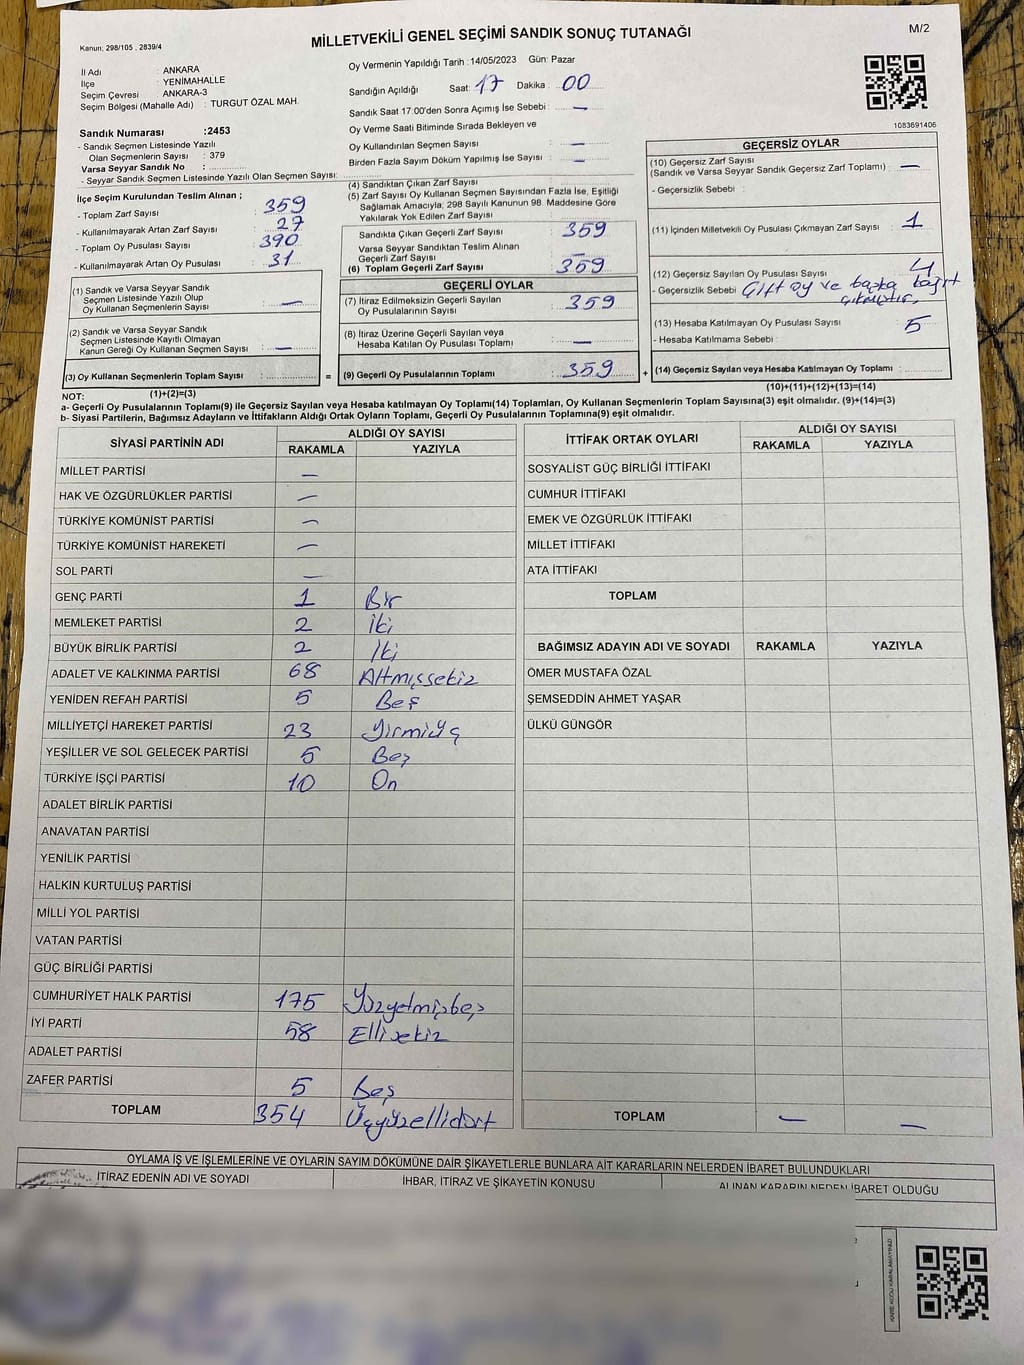 Kanun: 298/105 , 2839/4
MİLLETVEKİLİ GENEL SEÇİMİ SANDIK SONUÇ TUTANAĞI
M/2
İl Adı : ANKARA
İlçe : YENİMAHALLE
Seçim Çevresi : ANKARA-3
Seçim Bölgesi (Mahalle Adı) : TURGUT ÖZAL MAH.
Sandık Numarası :2453
- Sandık Seçmen Listesinde Yazılı
Olan Seçmenlerin Sayısı : 379
Varsa Seyyar Sandık No :
- Seyyar Sandık Seçmen Listesinde Yazılı Olan Seçmen Sayısı:
İlçe Seçim Kurulundan Teslim Alınan ;
- Toplam Zarf Sayısı : 359
- Kullanılmayarak Artan Zarf Sayısı : 27
- Toplam Oy Pusulası Sayısı : 390
- Kullanılmayarak Artan Oy Pusulası : 31
(1) Sandık ve Varsa Seyyar Sandık
Seçmen Listesinde Yazılı Olup
Oy Kullanan Seçmenlerin Sayısı : —
(2) Sandık ve Varsa Seyyar Sandık
Seçmen Listesinde Kayıtlı Olmayan
Kanun Gereği Oy Kullanan Seçmen Sayısı : —
(3) Oy Kullanan Seçmenlerin Toplam Sayısı : =
(1)+(2)=(3)
Oy Vermenin Yapıldığı Tarih :14/05/2023 Gün: Pazar
Sandığın Açıldığı Saat: 17 Dakika : 00
Sandık Saat 17.00'den Sonra Açımış İse Sebebi : —
Oy Verme Saati Bitiminde Sırada Bekleyen ve
Oy Kullandırılan Seçmen Sayısı : —
Birden Fazla Sayım Döküm Yapılmış İse Sayısı : —
(4) Sandıktan Çıkan Zarf Sayısı :
(5) Zarf Sayısı Oy Kullanan Seçmen Sayısından Fazla İse, Eşitliği
Sağlamak Amacıyla; 298 Sayılı Kanunun 98. Maddesine Göre
Yakılarak Yok Edilen Zarf Sayısı :
Sandıkta Çıkan Geçerli Zarf Sayısı : 359
Varsa Seyyar Sandıktan Teslim Alınan
Geçerli Zarf Sayısı : —
(6) Toplam Geçerli Zarf Sayısı : 359
GEÇERLİ OYLAR
(7) İtiraz Edilmeksizin Geçerli Sayılan
Oy Pusulalarının Sayısı : 359
(8) İtiraz Üzerine Geçerli Sayılan veya
Hesaba Katılan Oy Pusulası Toplamı : —
(9) Geçerli Oy Pusulalarının Toplamı : 359 +
1083691406
GEÇERSİZ OYLAR
(10) Geçersiz Zarf Sayısı
(Sandık ve Varsa Seyyar Sandık Geçersiz Zarf Toplamı) : —
- Geçersizlik Sebebi :
(11) İçinden Milletvekili Oy Pusulası Çıkmayan Zarf Sayısı : 1
(12) Geçersiz Sayılan Oy Pusulası Sayısı : 4
- Geçersizlik Sebebi : Çift oy ve başka kağıt
çıkmıştır.
(13) Hesaba Katılmayan Oy Pusulası Sayısı : 5
- Hesaba Katılmama Sebebi :
(14) Geçersiz Sayılan veya Hesaba Katılmayan Oy Toplamı :
(10)+(11)+(12)+(13)=(14)
NOT:
a- Geçerli Oy Pusulalarının Toplamı(9) ile Geçersiz Sayılan veya Hesaba katılmayan Oy Toplamı(14) Toplamları, Oy Kullanan Seçmenlerin Toplam Sayısına(3) eşit olmalıdır. (9)+(14)=(3)
b- Siyasi Partilerin, Bağımsız Adayların ve İttifakların Aldığı Ortak Oyların Toplamı, Geçerli Oy Pusulalarının Toplamına(9) eşit olmalıdır.
SİYASİ PARTİNİN ADI ALDIĞI OY SAYISI
RAKAMLA YAZIYLA
MİLLET PARTİSİ —
HAK VE ÖZGÜRLÜKLER PARTİSİ —
TÜRKİYE KOMÜNİST PARTİSİ —
TÜRKİYE KOMÜNİST HAREKETİ —
SOL PARTİ —
GENÇ PARTİ 1 Bir
MEMLEKET PARTİSİ 2 İki
BÜYÜK BİRLİK PARTİSİ 2 İki
ADALET VE KALKINMA PARTİSİ 68 Altmışsekiz
YENİDEN REFAH PARTİSİ 5 Beş
MİLLİYETÇİ HAREKET PARTİSİ 23 Yirmiüç
YEŞİLLER VE SOL GELECEK PARTİSİ 5 Beş
TÜRKİYE İŞÇİ PARTİSİ 10 On
ADALET BİRLİK PARTİSİ
ANAVATAN PARTİSİ
YENİLİK PARTİSİ
HALKIN KURTULUŞ PARTİSİ
MİLLİ YOL PARTİSİ
VATAN PARTİSİ
GÜÇ BİRLİĞİ PARTİSİ
CUMHURİYET HALK PARTİSİ 175 Yüzyetmişbeş
İYİ PARTİ 58 Ellisekiz
ADALET PARTİSİ
ZAFER PARTİSİ 5 Beş
TOPLAM 354 Üçyüzellidört
İTTİFAK ORTAK OYLARI ALDIĞI OY SAYISI
RAKAMLA YAZIYLA
SOSYALİST GÜÇ BİRLİĞİ İTTİFAKI
CUMHUR İTTİFAKI
EMEK VE ÖZGÜRLÜK İTTİFAKI
MİLLET İTTİFAKI
ATA İTTİFAKI
TOPLAM
BAĞIMSIZ ADAYIN ADI VE SOYADI RAKAMLA YAZIYLA
ÖMER MUSTAFA ÖZAL
ŞEMSEDDİN AHMET YAŞAR
ÜLKÜ GÜNGÖR
TOPLAM — —
OYLAMA İŞ VE İŞLEMLERİNE VE OYLARIN SAYIM DÖKÜMÜNE DAİR ŞİKAYETLERLE BUNLARA AİT KARARLARIN NELERDEN İBARET BULUNDUKLARI
İTİRAZ EDENİN ADI VE SOYADI İHBAR, İTİRAZ VE ŞİKAYETİN KONUSU ALINAN KARARIN NEDEN İBARET OLDUĞU
KARE KODU KARALAMAYINIZ!